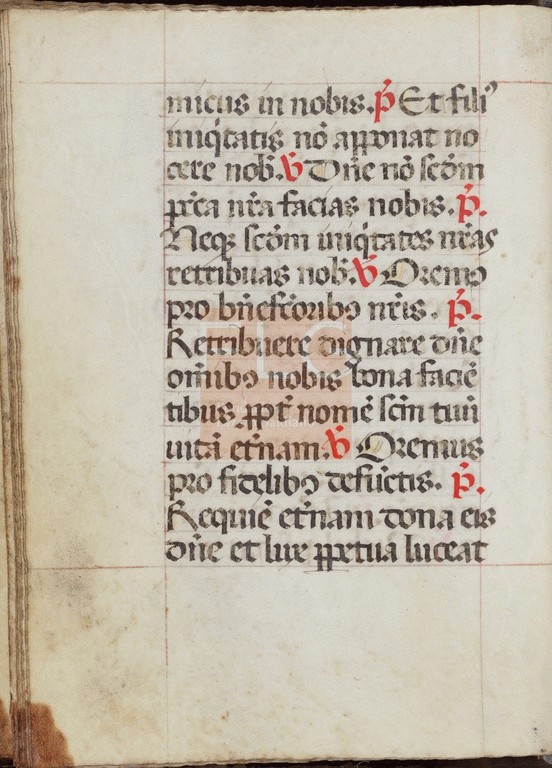 micus in nobis. ꝶ Et fili⁹
iniq̇tatis nō apponat no
cere nob̄. ℣ Dn̄e nō scd̄m
pc̄ca nr̄a facias nobis. ꝶ.
Neqꝫ scd̄m iniq̇tates nr̄as
rettribuas nob̄. ℣ Oremꝰ
pro bn̄efctōribꝰ nr̄is. ꝶ.
Rettribuere dignare dn̄e
om̄ibꝰ nobis bona faciē
tibus ꝓpt̄ nomē scm̄ tuū
uitā et̄nam. ℣ Oremus
pro fidelibꝰ defūctis. ꝶ.
Requiē et̄nam dona eis
dn̄e et lux ꝑpetua luceat